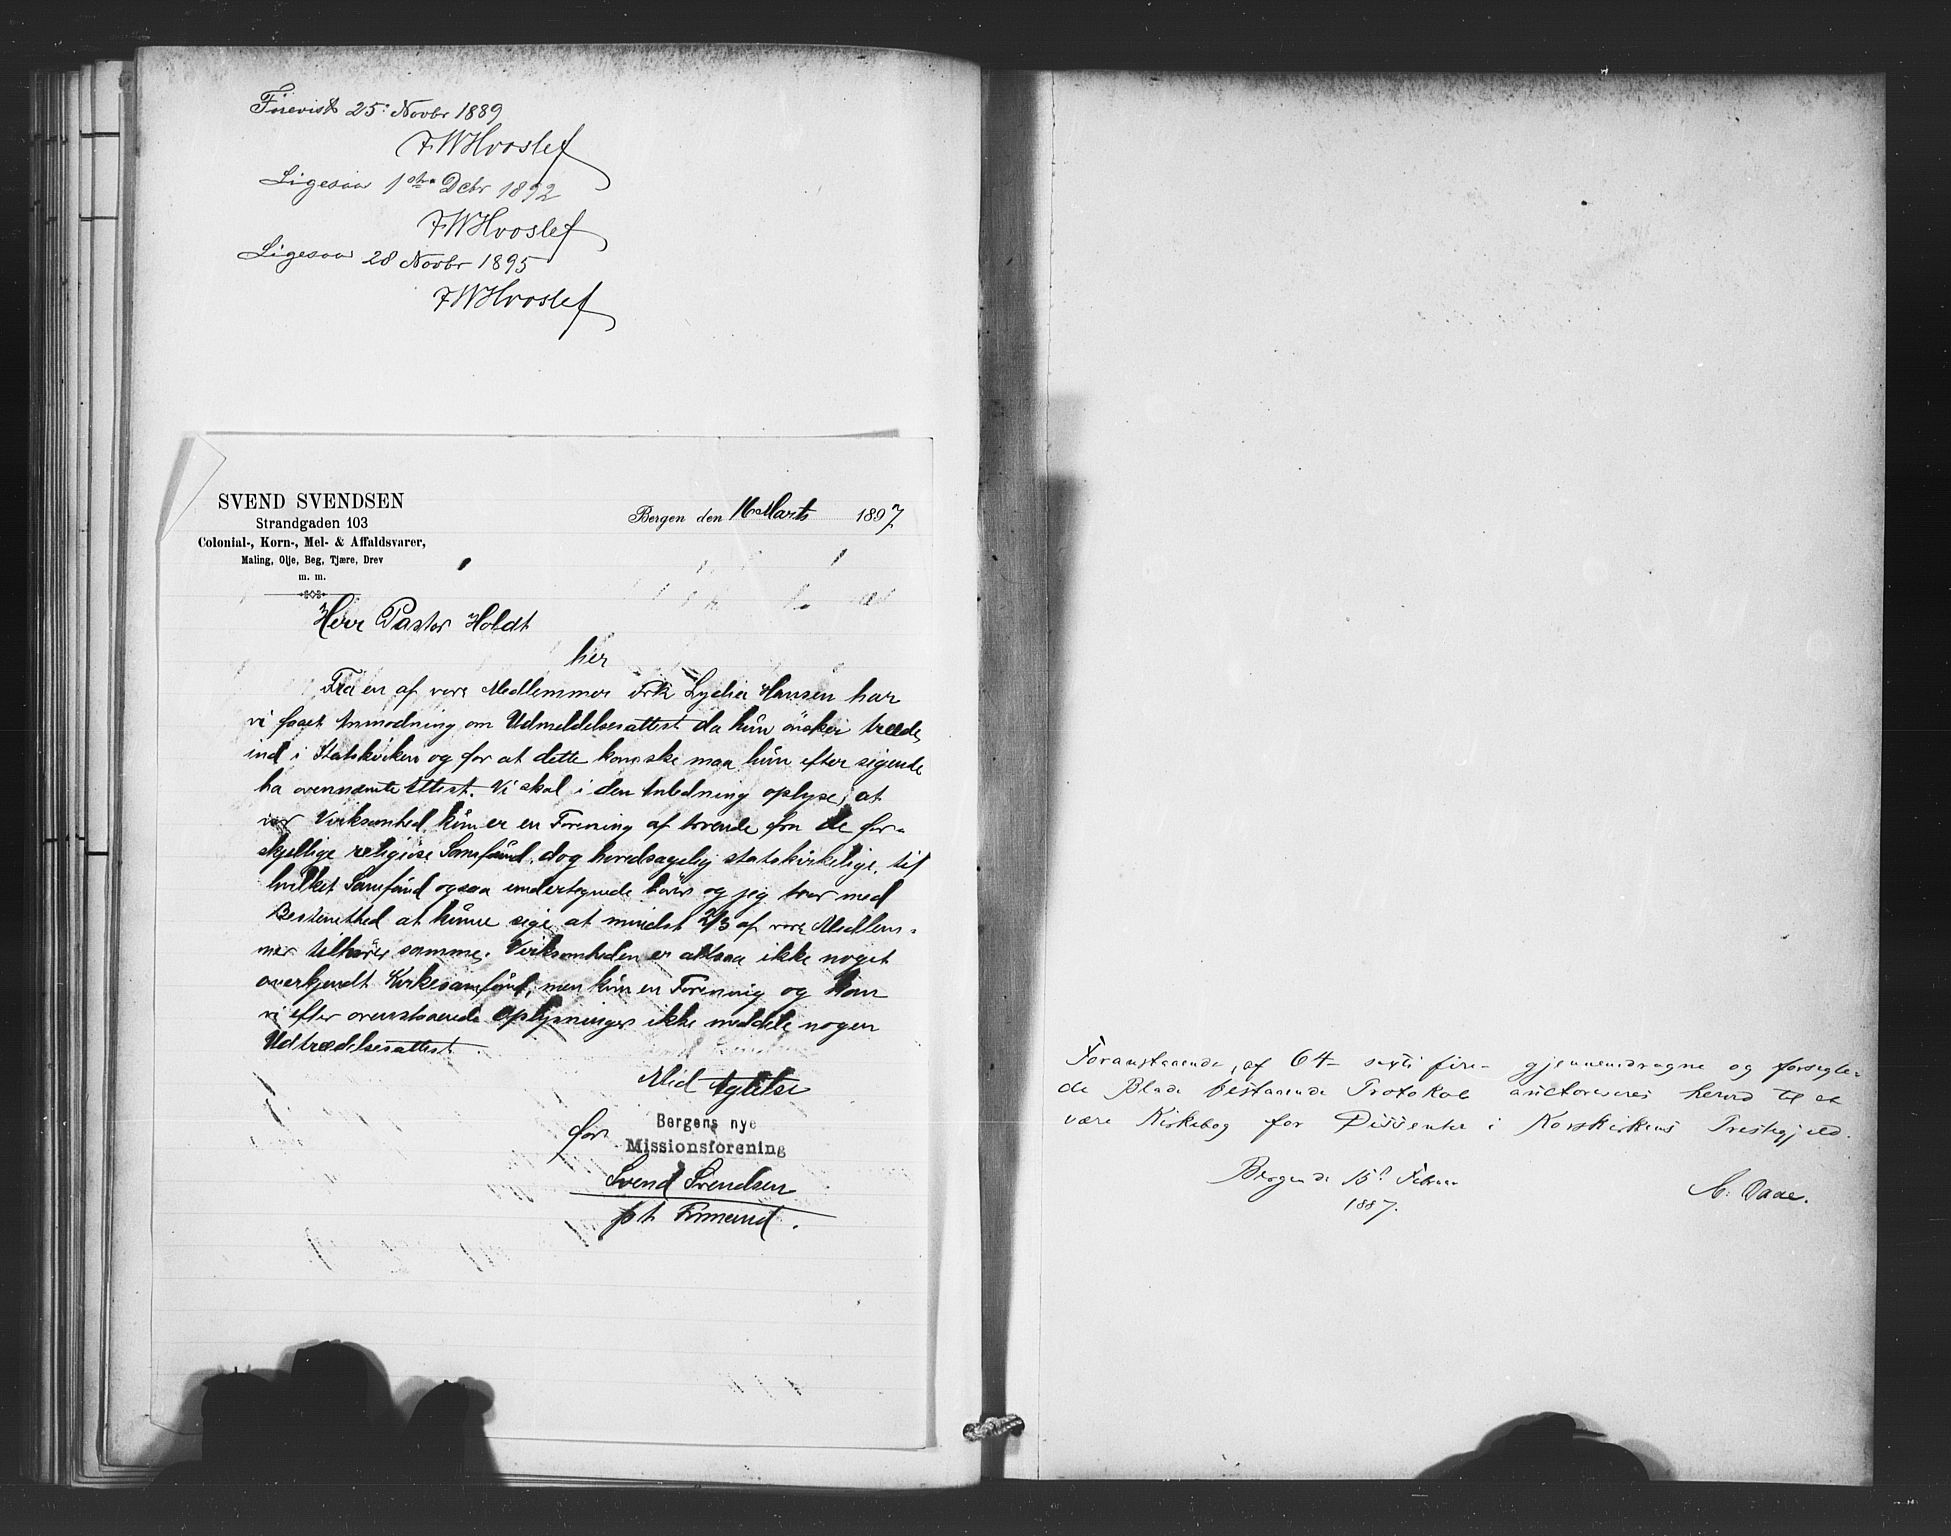 Forevist 25: Novbr 1889
F W Hvoslef
Ligesaa 1ste Debr 1892
F W Hvoslef
Ligesaa 28 Novbr 1895
F W Hvoslef
SVEND SVENDSEN
Strandgaden 103
Colonial-, Korn-, Mel- & Affaldsvarer,
Maling, Olje, Beg, Tjære, Drev
m. m.
Bergen den 16 Marts 1897
Herr Pastor Holdt
her
Fra en af vore Medlemmer Frk Lydia Hansen har
vi faaet Anmodning om Udmeldelsesattest da hun ønsker træde
ind i Statskirken og for at dette kan ske maa hun efter sigende
ha ovennævnte Attest. Vi skal i den Anledning oplyse, at
vor Virksomhed kun er en Forening af troende fra de for-
skjellige religiøse Samfund, dog hovedsagelig statskirkelige, til
hvilket Samfund ogsaa undertegnede hører og jeg tror med
Bestemthed at kunne sige at mindst 2/3 af vore Medlem-
mer tilhører samme. Virksomheden er altsaa ikke noget
anerkjendt Kirkesamfund, men kun en Forening og kan
vi efter ovenstaaende Oplysninger ikke meddele nogen
Udtrædelsesattest.
Med Agtelse
for Bergens nye
Missionsforening
Svend Svendsen
p t Formand.
Foranstaaende, af 64 - sexti fire - gjennemdragne og forsegle-
de Blade bestaaende Protokol auctoriseres herved til at
være Kirkebog for Dissenter i Korskirkens Prestegjeld.
Bergen de 15de Februar
1887.
C. Daae.